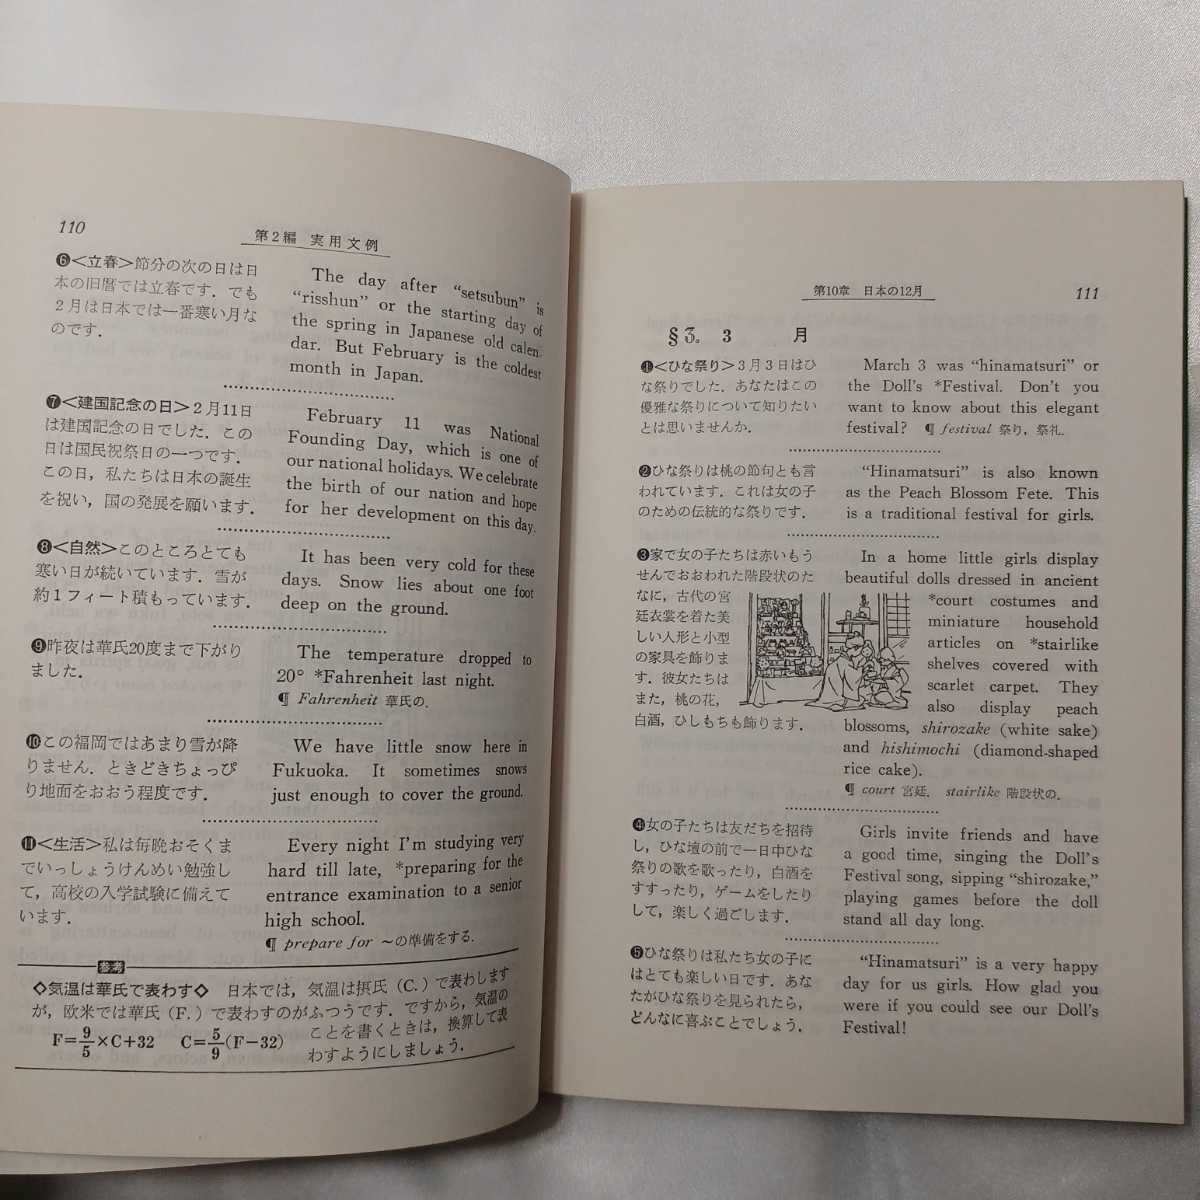 110
第2編 実用文例
❻<立春>節分の次の日は日
本の旧暦では立春です．でも
２月は日本では一番寒い月な
のです．
The day after “setsubun” is
“risshun” or the starting day of
the spring in Japanese old calen-
dar. But February is the coldest
month in Japan.
❼<建国記念の日>２月11日
は建国記念の日でした．この
日は国民祝祭日の一つです．
この日，私たちは日本の誕生
を祝い，国の発展を願います．
February 11 was National
Founding Day, which is one of
our national holidays. We celebrate
the birth of our nation and hope
for her development on this day.
❽<自然>このところとても
寒い日が続いています．雪が
約１フィート積もっています．
It has been very cold for these
days. Snow lies about one foot
deep on the ground.
❾昨夜は華氏20度まで下がり
ました．
The temperature dropped to
20° *Fahrenheit last night.
¶ Fahrenheit 華氏の．
❿この福岡ではあまり雪が降
りません．ときどきちょっぴ
り地面をおおう程度です．
We have little snow here in
Fukuoka. It sometimes snows
just enough to cover the ground.
⓫<生活>私は毎晩おそくま
でいっしょうけんめい勉強し
て，高校の入学試験に備えて
います．
Every night I'm studying very
hard till late, *preparing for the
entrance examination to a senior
high school.
¶ prepare for ～の準備をする．
参考
◇気温は華氏で表わす◇ 日本では，気温は摂氏（C.）で表わします
が，欧米では華氏（F.）で表わすのがふつうです．ですから，気温の
F=9/5×C+32 C=5/9(F−32) ことを書くときは，換算して表
わすようにしましょう．
第10章 日本の12月
111
§3. 3 月
❶<ひな祭り>３月３日はひ
な祭りでした．あなたはこの
優雅な祭りについて知りたい
とは思いませんか．
March 3 was “hinamatsuri” or
the Doll's *Festival. Don't you
want to know about this elegant
festival? ¶ festival 祭り，祭礼．
❷ひな祭りは桃の節句とも言
われています．これは女の子
のための伝統的な祭りです．
“Hinamatsuri” is also known
as the Peach Blossom Fete. This
is a traditional festival for girls.
❸家で女の子たちは赤いもう
せんでおおわれた階段状のた
なに，古代の宮
廷衣裳を着た美
しい人形と小型
の家具を飾りま
す．彼女たちは
また，桃の花，
白酒，ひしもちも飾ります．
In a home little girls display
beautiful dolls dressed in ancient
*court costumes and
miniature household
articles on *stairlike
shelves covered with
scarlet carpet. They
also display peach
blossoms, shirozake (white sake)
and hishimochi (diamond-shaped
rice cake).
¶ court 宮廷． stairlike 階段状の．
❹女の子たちは友だちを招待
し，ひな壇の前で一日中ひな
祭りの歌を歌ったり，白酒を
すすったり，ゲームをしたり
して，楽しく過ごします．
Girls invite friends and have
a good time, singing the Doll's
Festival song, sipping “shirozake,”
playing games before the doll
stand all day long.
❺ひな祭りは私たち女の子に
はとても楽しい日です．あな
たがひな祭りを見られたら，
どんなに喜ぶことでしょう．
“Hinamatsuri” is a very happy
day for us girls. How glad you
were if you could see our Doll's
Festival!